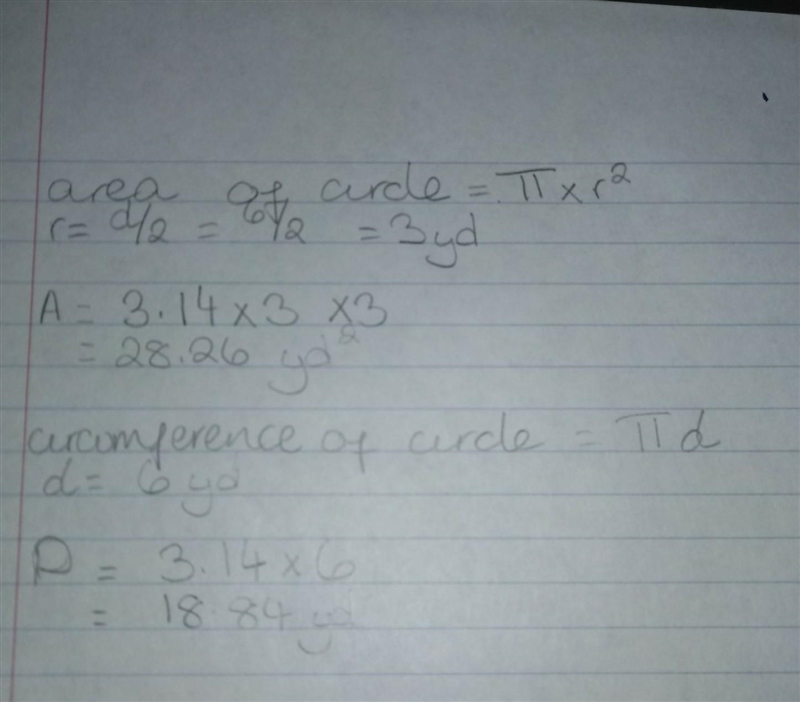 area of circle = π x r²
r = d/2 = 6/2 = 3yd
A = 3.14 x 3 x 3
= 28.26 yd²
circumference of circle = π d
d = 6 yd
P = 3.14 x 6
= 18.84 yd